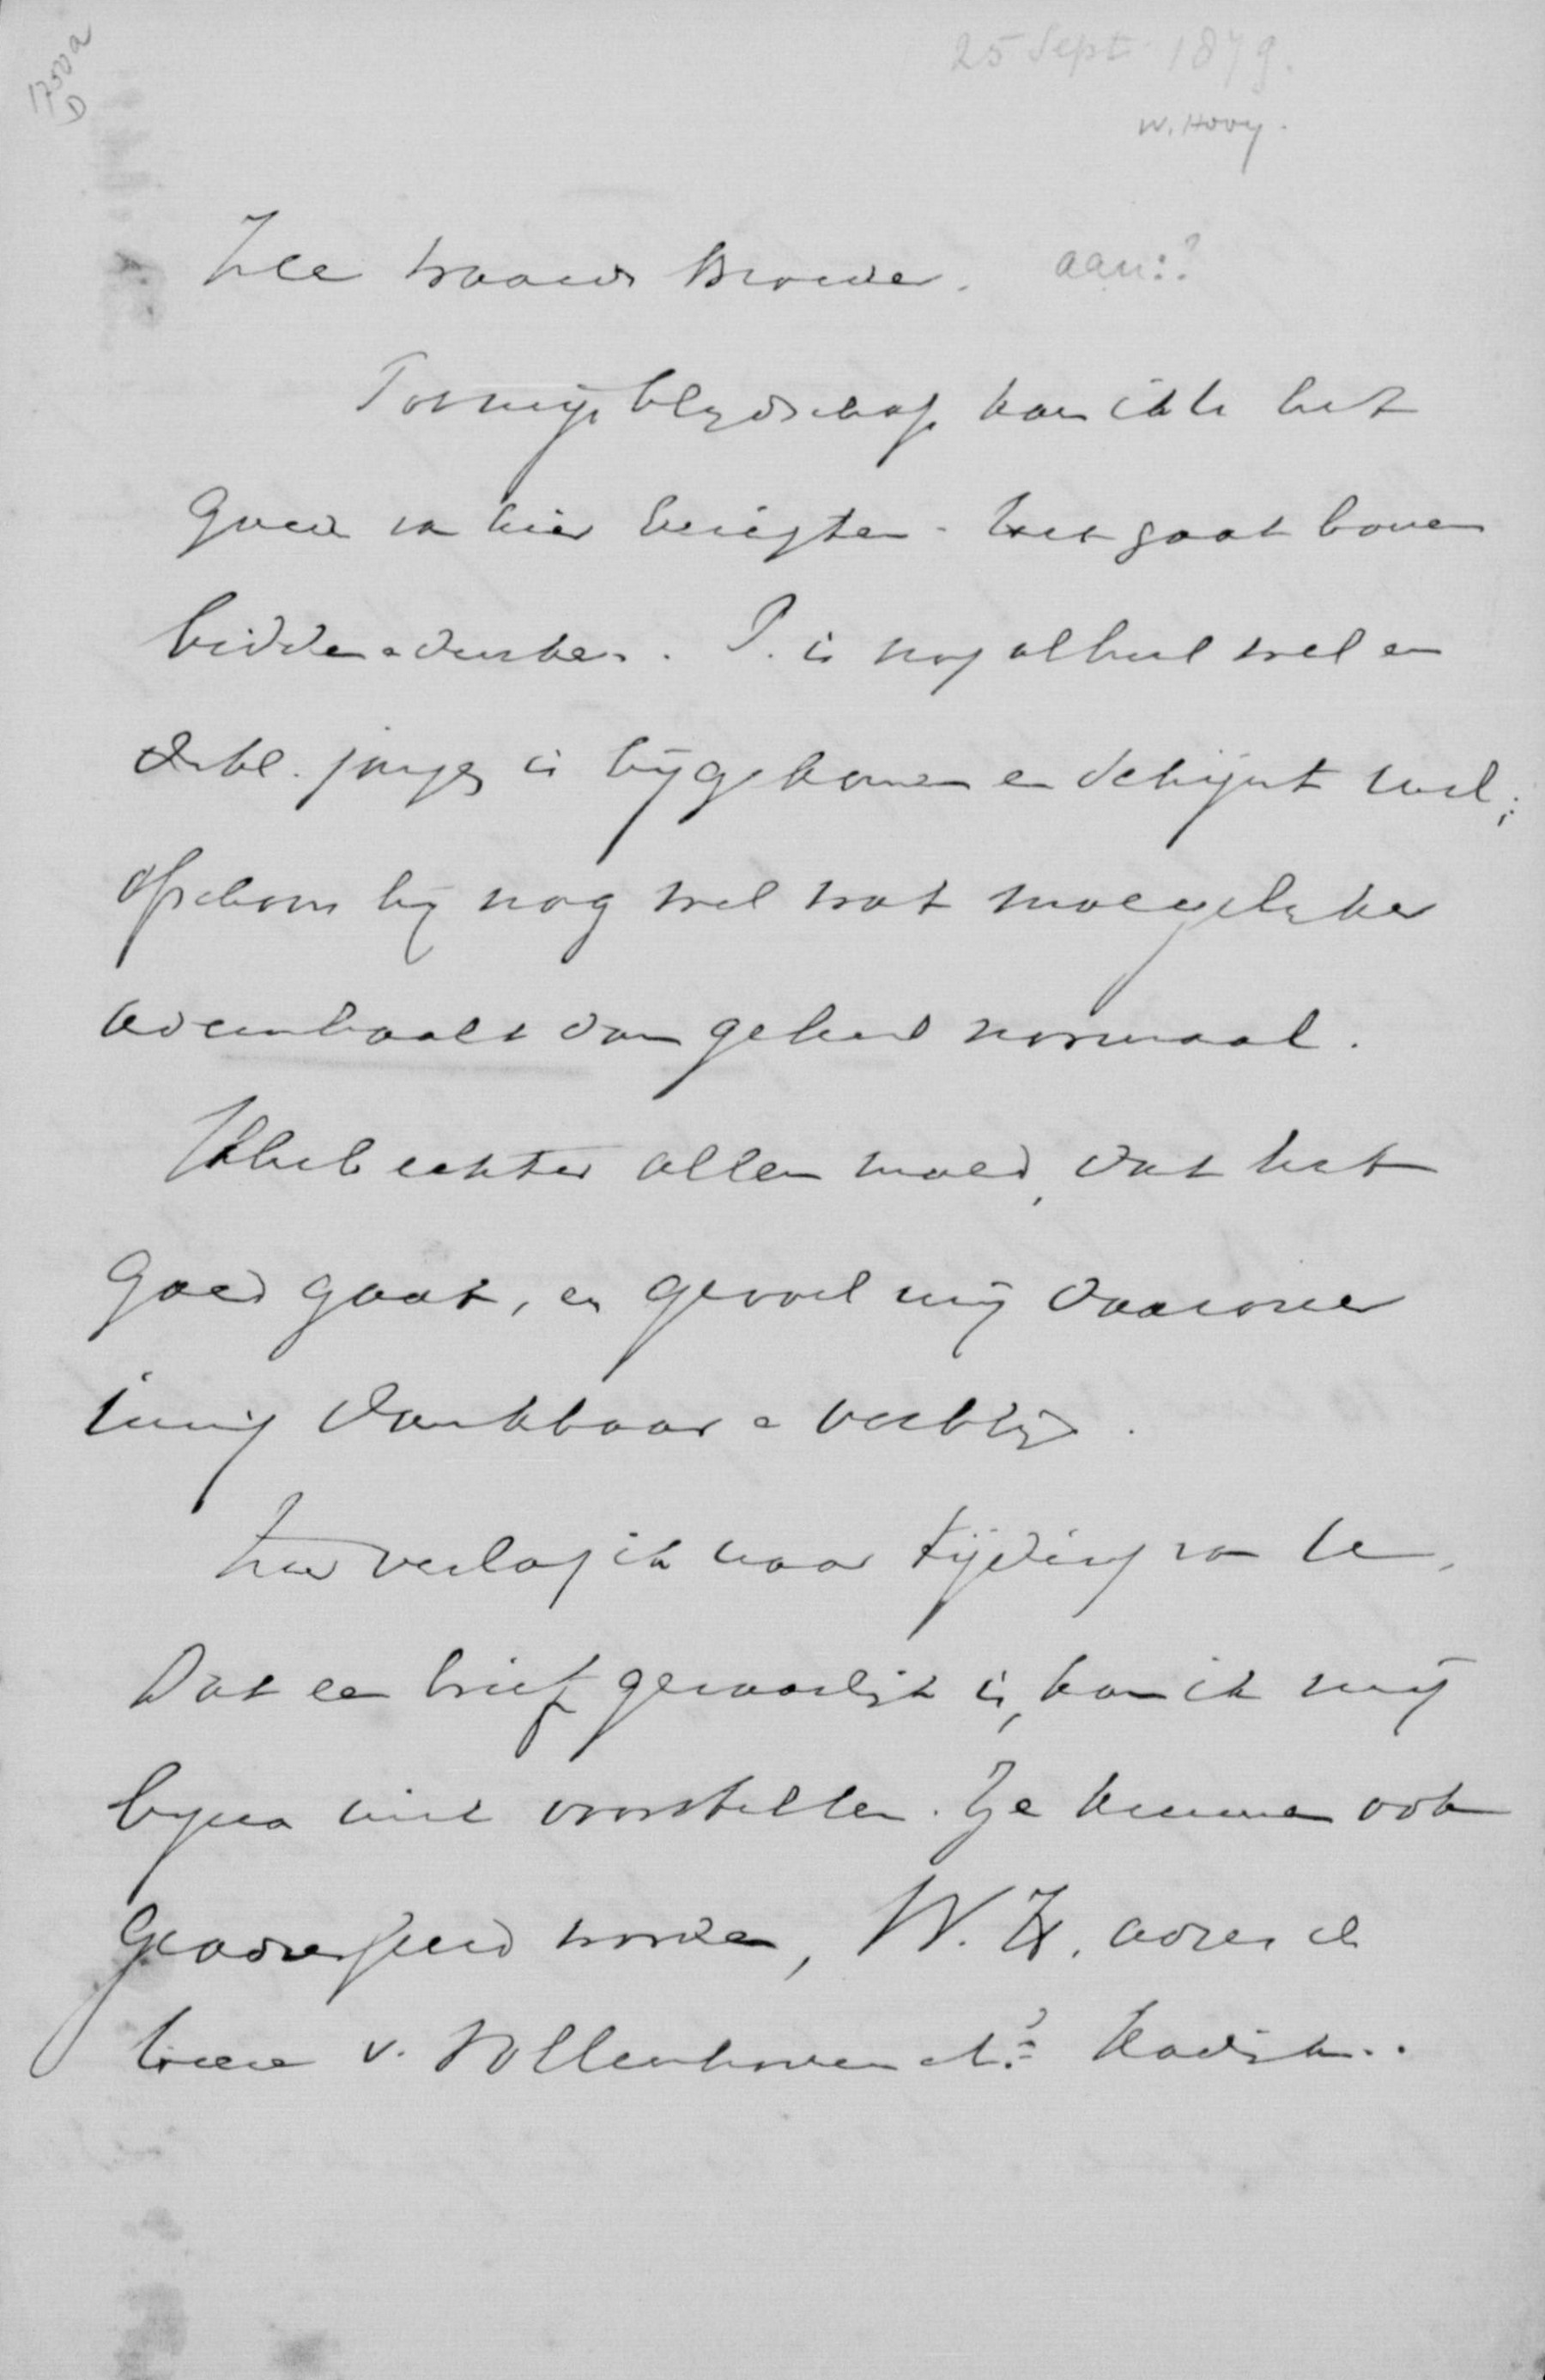 1750a
D
25 Sept. 1879.
W. Hooy.
Zeer waarde Broeder. aan:?
Tot mijn blydschap kan ik U het
goede van hier berigten. Het gaat boven
bidden en denken. P. is nog altheid wel en
de kl. jongen is bijgekomen en schijnt wel;
ofschoon hij nog wel wat moeyelyker
ademhaalt dan geheel normaal.
Ik heb echter allen moed, dat het
goed gaat, en gevoel mij daarover
innig dankbaar en verblijd.
Zeer verlang ik naar tijding van U.
Dat een brief gevaarlijk is, kan ik mij
byna niet voorstellen. Ze kunnen ook
geadresseerd worden, W. H. adres de
heer v. Vollenhoven